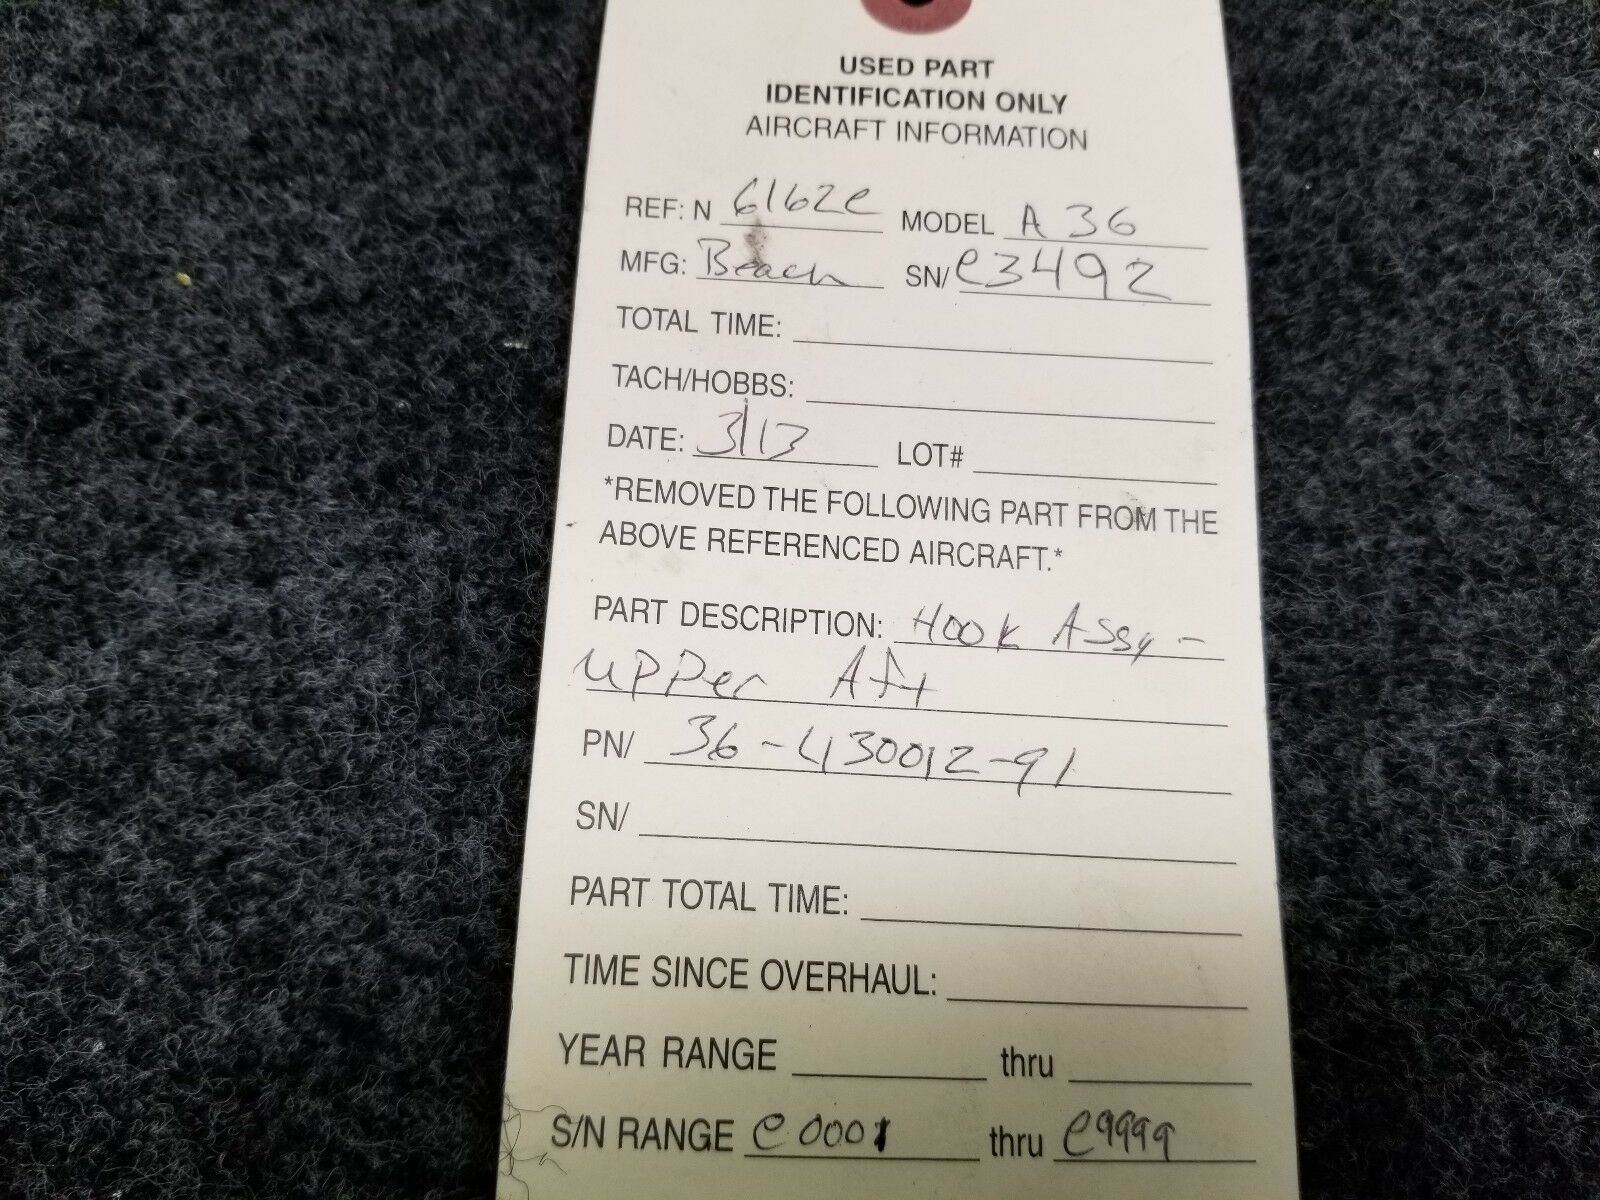 USED PART
IDENTIFICATION ONLY
AIRCRAFT INFORMATION
REF: N 6162e MODEL A 36
MFG: Beach SN/ e3492
TOTAL TIME:
TACH/HOBBS:
DATE: 3/13 LOT#
*REMOVED THE FOLLOWING PART FROM THE
ABOVE REFERENCED AIRCRAFT.*
PART DESCRIPTION: Hook Assy -
upper Aft
PN/ 36-430012-91
SN/
PART TOTAL TIME:
TIME SINCE OVERHAUL:
YEAR RANGE thru
S/N RANGE e0001 thru e9999